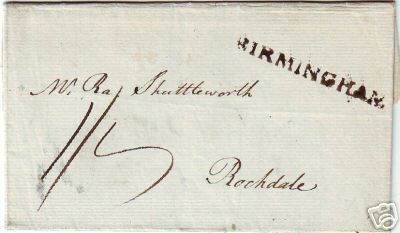 BIRMINGHAM
Mr. Ra Shuttleworth
Rochdale
ebY